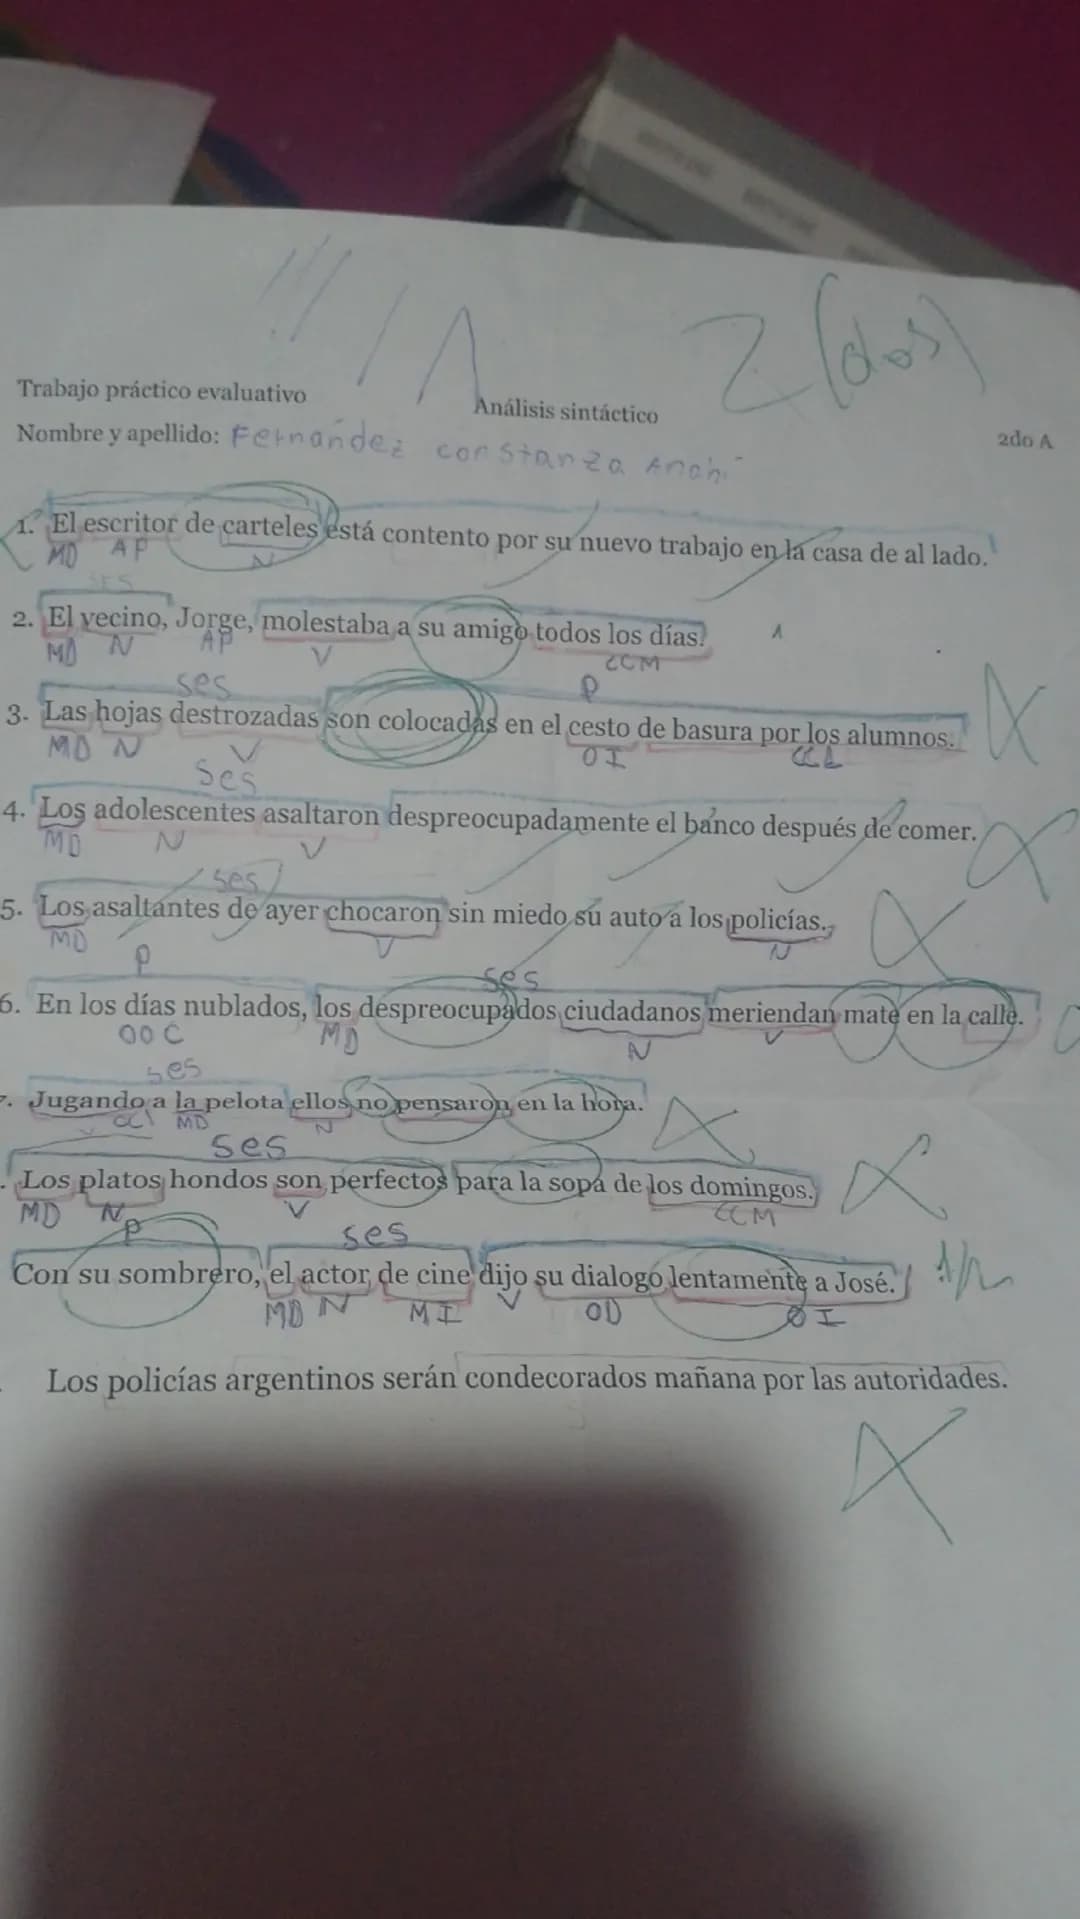 2 (dos)
Trabajo práctico evaluativo
Análisis sintáctico
2do A
Nombre y apellido: Fernandez constanza Anahi
1. El escritor de carteles está contento por su nuevo trabajo en la casa de al lado.
MD AP N
SES
2. El vecino, Jorge, molestaba a su amigo todos los días. 1
MD N AP V CCM
ses P
3. Las hojas destrozadas son colocadas en el cesto de basura por los alumnos.
MD N V OI CCL
Ses
4. Los adolescentes asaltaron despreocupadamente el banco después de comer.
MD N V
ses
5. Los asaltantes de ayer chocaron sin miedo su auto a los policías.
MD V N
P ses
6. En los días nublados, los despreocupados ciudadanos meriendan mate en la calle.
MD N V
ses
7. Jugando a la pelota ellos no pensaron en la hora.
MD N
ses
. Los platos hondos son perfectos para la sopa de los domingos.
MD N V CCM
P ses
Con su sombrero, el actor de cine dijo su dialogo lentamente a José. 1/2
MD N MI V OD OI
Los policías argentinos serán condecorados mañana por las autoridades.